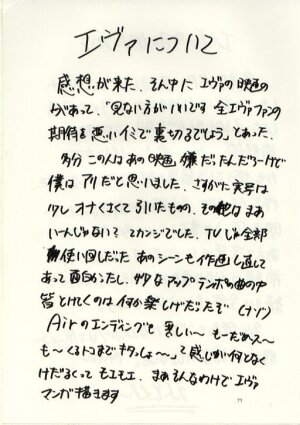 エヴァについて
感想が来た、そん中に エヴァの映画の
があって、「見ない方がいいです 全エヴァファンの
期待を悪いイミで裏切るでしょう」とあった、
多分 この人はあの映画嫌だったんだろーけど
僕は アリだと思いました、さすがに実写は
少しオナくさくて引いたものの、その他はまあ
いーんじゃない?てカンジでした、TVじゃ全部
使い回しだった あのシーンも作画し直して
あって面白かったし、妙なアップテンポの曲の中
皆とけてくのは何か楽しげだったぞ (ナゾ)
Airのエンディングも 美しい〜 もーだめス〜
も〜くるトコまでキタっしょ〜」て感じが何となく
けだるくって モエモエ、まぁそんなわけで エヴァ
マンガ描きます